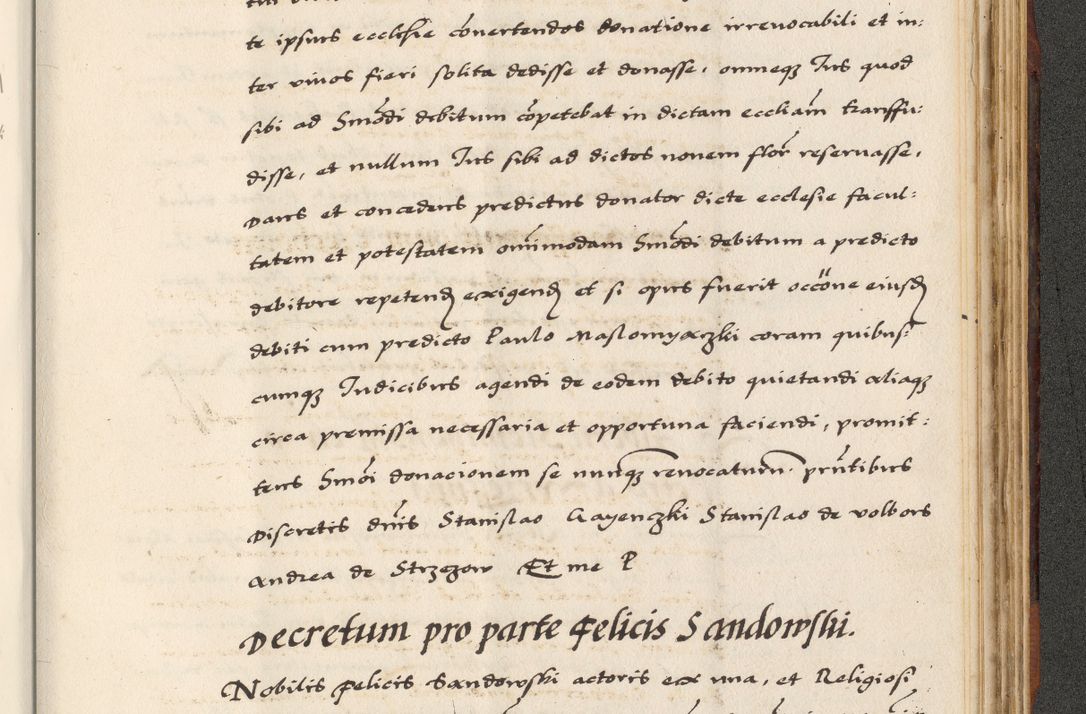 te ipsius ecclesie cõvertendos donatione irrevocabili et in:
ter vivos fieri solita dedisse et donasse, omneqȝ Ius quod
sibi ad Smõdi debitum cõpetebat in dictam eccliãm transffu:
disse, et nullum Ius sibi ad dictos novem florˉ reservasse,
Dans et concedens predictus donator dicte ecclesie facul:
tatem et potestatem om̃imodam Smõdi debitum a predicto
debitore repetendȝ exigendȝ et si opus fuerit occöne eiusdȝ
debiti cum predicto Paulo Maslomyaczki coram quibus:
cumqȝ Iudicibus agendi de eodem debito quietandi aliaqȝ
circa premissa necessaria et opportuna faciendi, promit:
tens Smõi donacionem se nunqȝ revocaturũ. prñtibus
Discretis dñis Stanislao Gayenczki Stanislao de volbors
Andrea de Strzegow Et me P
Decretum pro parte Felicis Sandowski.
Nobilis Felicis Sandowski actoris ex una, et Religiosi